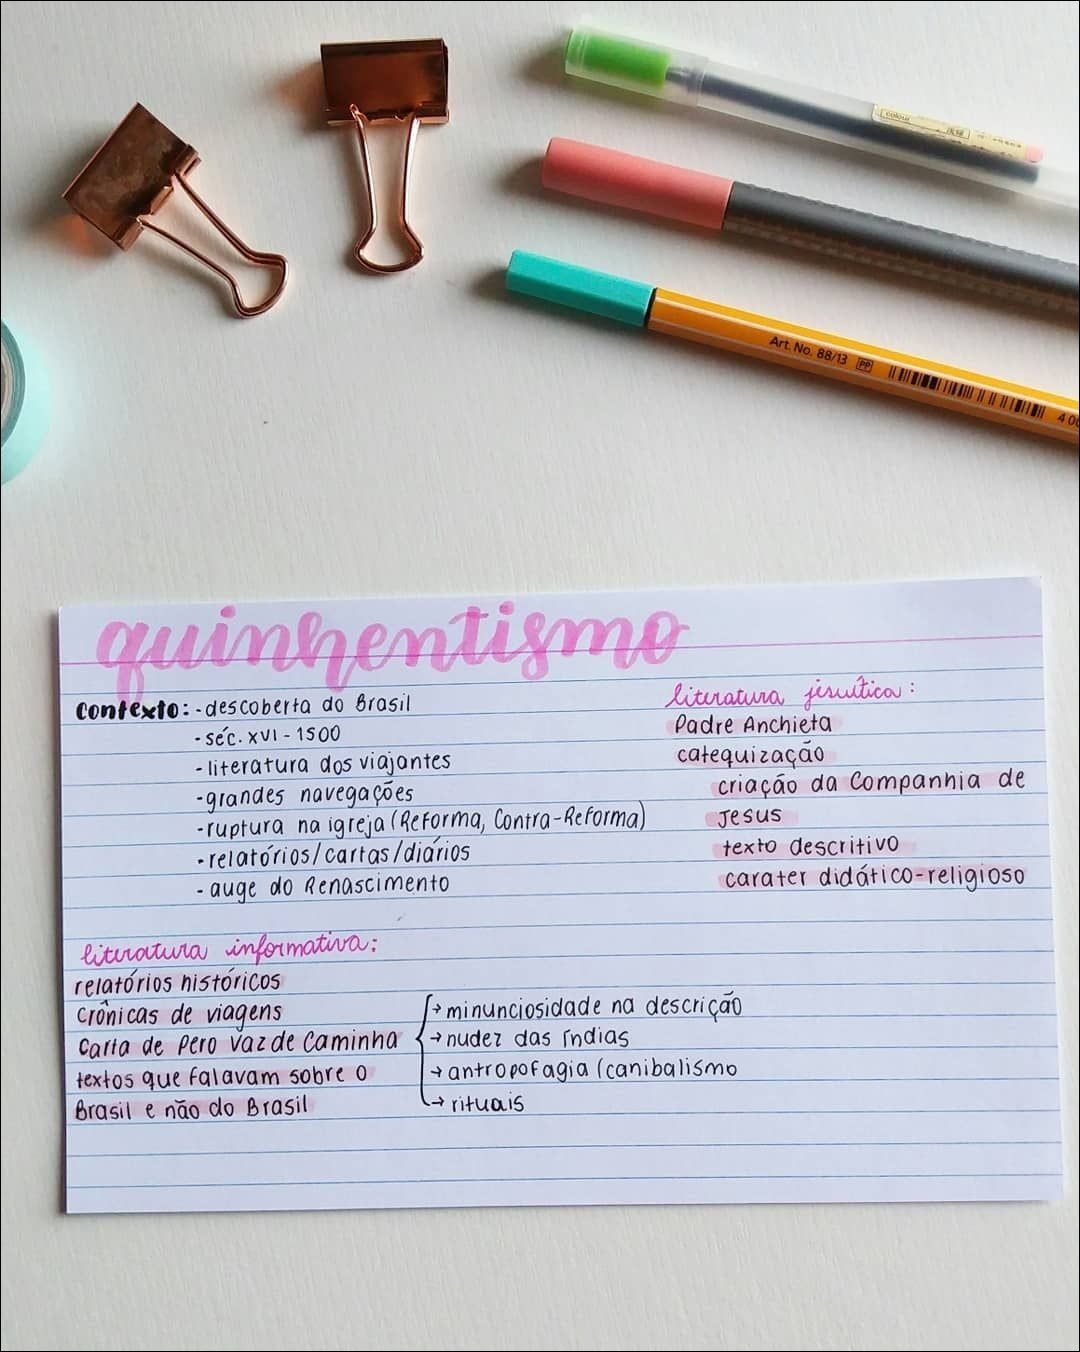 colour
Art. No. 88/13 PP
4 00
quinhentismo
contexto: - descoberta do Brasil
- séc. XVI - 1500
- literatura dos viajantes
- grandes navegações
- ruptura na igreja (Reforma, Contra-Reforma)
- relatórios/cartas/diários
- auge do Renascimento
literatura jesuítica:
Padre Anchieta
catequização
criação da Companhia de
Jesus
texto descritivo
carater didático-religioso
literatura informativa:
relatórios históricos
crônicas de viagens
Carta de Pero Vaz de Caminha
textos que falavam sobre o
Brasil e não do Brasil
→ minunciosidade na descrição
→ nudez das índias
→ antropofagia (canibalismo
→ rituais